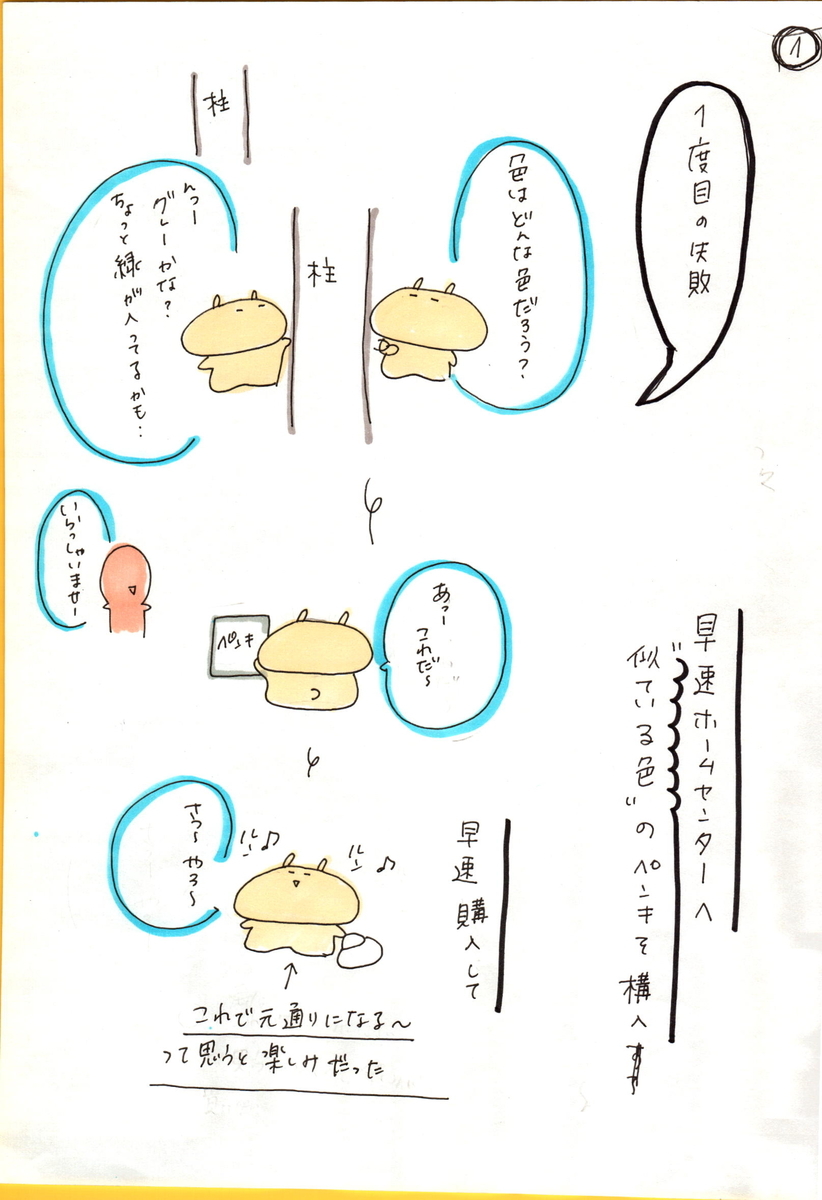 1
1度目の失敗
色はどんな色だろう?
柱
柱
んー
グレーかな?
ちょっと緑が入ってるかも…
早速ホームセンターへ
"似ている色"のペンキを構入
あっー
これだ〜
ペンキ
いらっしゃいませー
早速購入して
ルン♪
ルン♪
さぁ〜やろ〜
これで元通りになる〜
って思うと楽しみだった